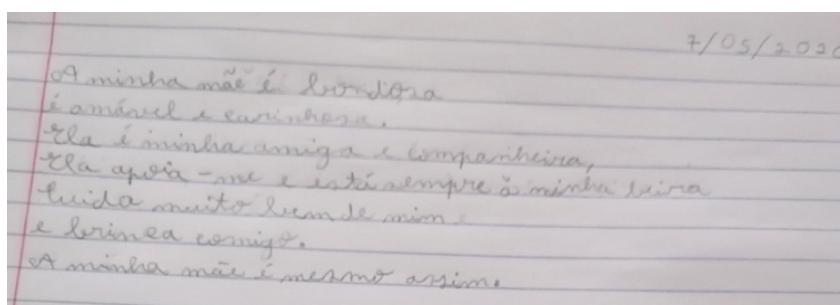 7/05/2020
A minha mãe é bondosa
é amável e carinhosa.
Ela é minha amiga e companheira,
Ela apoia-me e está sempre à minha beira
Cuida muito bem de mim
e brinca comigo.
A minha mãe é mesmo assim.